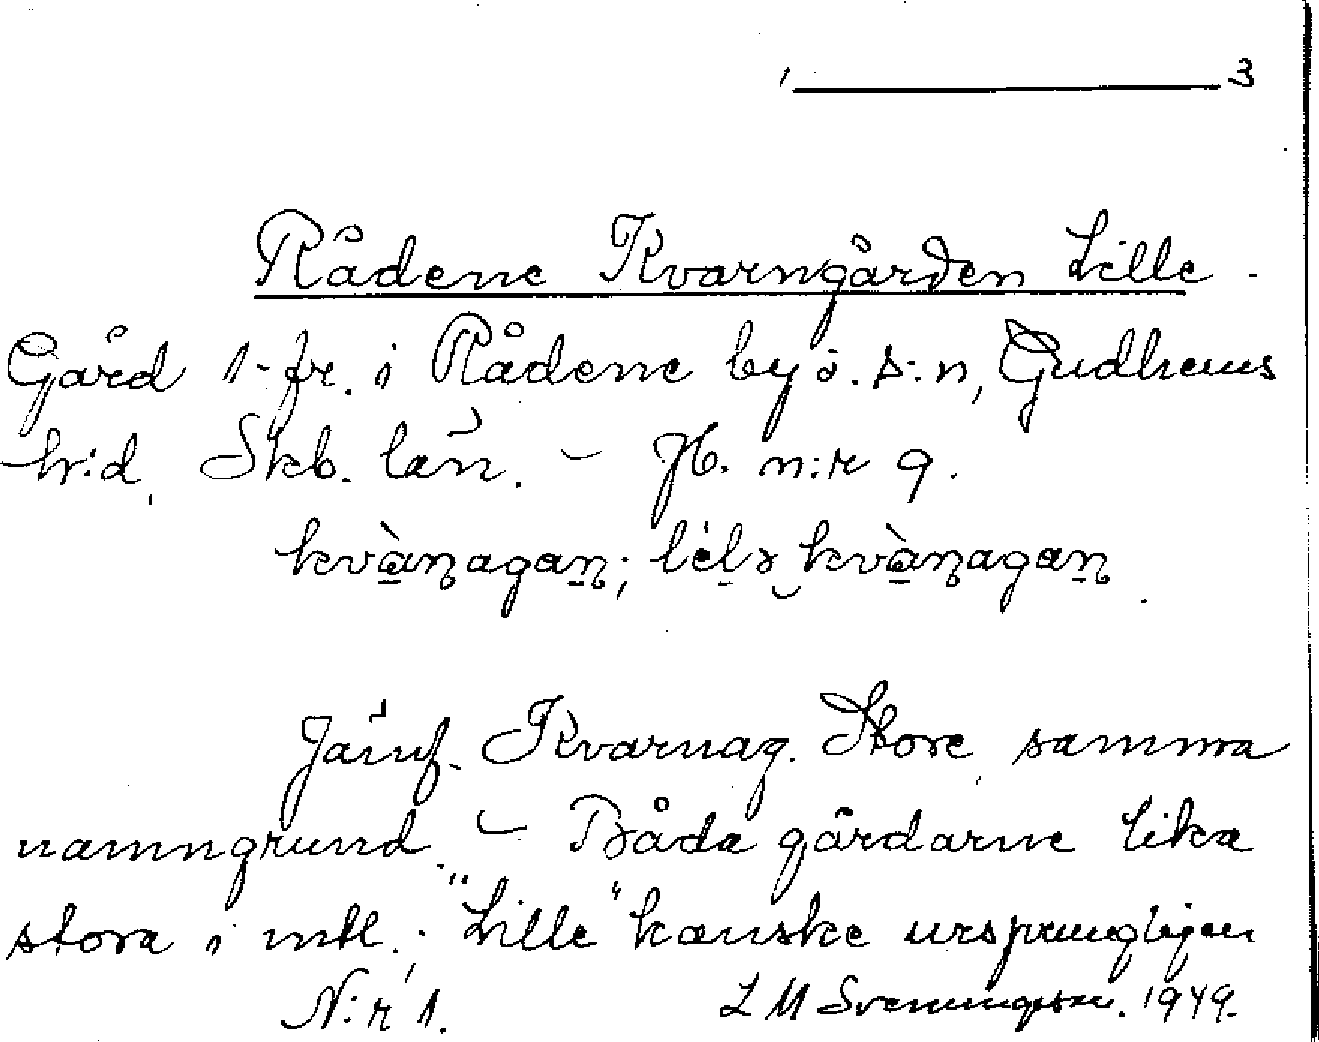 3
Rådene Kvarngården Lille.
Gård 1-fr. i Rådene by o. s:n, Gudhems
h:d, Skb. län. – Jb. n:r 9.
kvànagan; lélə kvànagan.
Jämf. Kvarnag. Store, samma
namngrund. – Båda gårdarne lika
stora i mtl.; "Lille" kanske ursprungligen
N:r 1. L M Svenungsson. 1949.